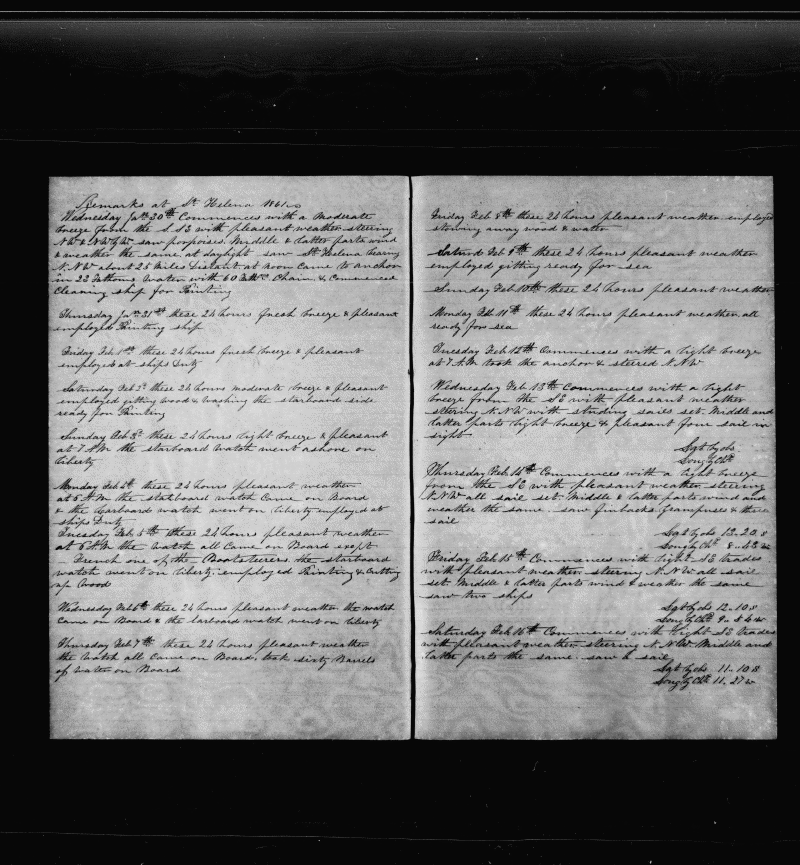 Remarks at St Helena 1861
Wednesday Jan 30th Commences with a moderate
breeze from the S S E with pleasant weather steering
NW & NW by W. saw porpoises. Middle & latter parts wind
& weather the same. at daylight saw St Helena bearing
N. N W about 25 miles Distant at noon Came to anchor
in 22 Fathoms Water with 60 Fath Chain & Commenced
Cleaning ship for Painting
Thursday Jan 31st these 24 hours fresh breeze & pleasant
employed Painting ship
Friday Feb 1st these 24 hours fresh breeze & pleasant
employed at ships Duty
Saturday Feb 2d these 24 hours moderate breeze & pleasant
employed gitting wood & washing the starboard side
ready for Painting
Sunday Feb 3d these 24 hours light breeze & pleasant
at 7 A.M the starboard watch went ashore on
liberty
Monday Feb 4th these 24 hours pleasant weather
at 6 A.M the starboard watch Came on Board
& the larboard watch went on liberty employed at
ships Duty
Tuesday Feb 5th these 24 hours pleasant weather
at 6 A.M the watch all Came on Board exept
French one of the Boatsteerers the starboard
watch went on liberty. employed Painting & Cutting
up Wood
Wednesday Feb 6th these 24 hours pleasant weather the watch
Came on Board & the larboard watch went on liberty
Thursday Feb 7th these 24 hours pleasant weather
the watch all Came on Board, took sixty Barrels
of water on Board
Friday Feb 8th these 24 hours pleasant weather employed
stowing away wood & water
Saturd Feb 9th these 24 hours pleasant weather
employed gitting ready for sea
Sunday Feb 10th these 24 hours pleasant weather
Monday Feb 11th these 24 hours pleasant weather. all
ready for sea
Tuesday Feb 12th Commences with a light breeze
at 7 A.M took the anchor & steered N. N W
Wednesday Feb 13th Commences with a light
breeze from the SE with pleasant weather
steering N. N W with studing sails set. Middle and
latter parts light breeze & pleasant four sail in
sight
Lat by obs
Long by Ch
Thursday Feb 14th Commences with a light breeze
from the SE with pleasant weather steering
N. N W all sail set. Middle & latter parts wind and
weather the same. saw finbacks Grampuses & three
sail
Lat by obs 12..20 S
Long by Ch 8..43 W
Friday Feb 15th Commences with light SE trades
with pleasant weather steering N. N W all sail
set. Middle & latter parts wind & weather the same
saw two ships
Lat by obs 12..10 S
Long by Ch 9..54 W
Saturday Feb 16th Commences with light SE trades
with pleasant weather steering N. N W. Middle and
latter parts the same. saw sail
Lat by obs 11..10 S
Long by Ch 11..27 W